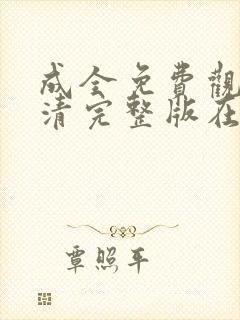 成全免費觀
清完整版在
覃照平